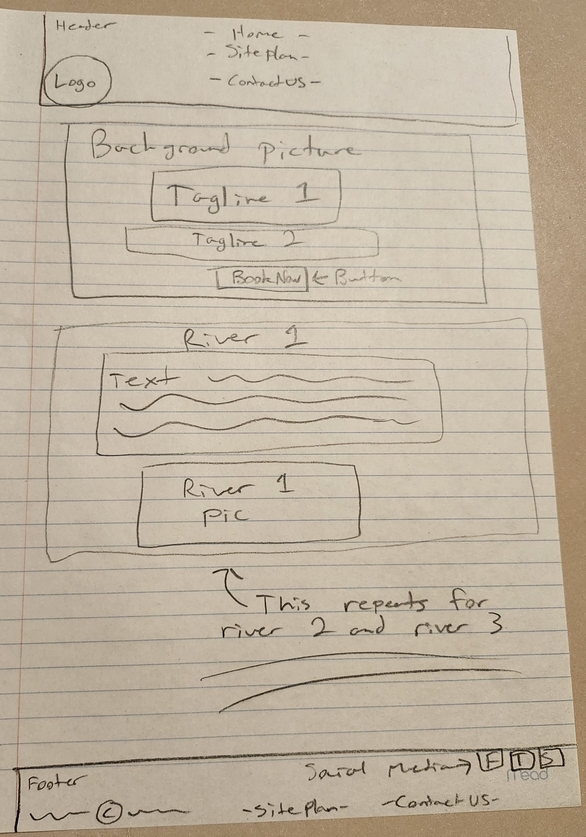 Header
- Home -
- Site Plan -
Logo
- Contact US -
Background picture
Tagline 1
Tagline 2
Book Now ← Button
River 1
Text
River 1
Pic
This repeats for
river 2 and river 3
Social Media → F I S
Mead
Footer
©
- Site Plan -
- Contact US -